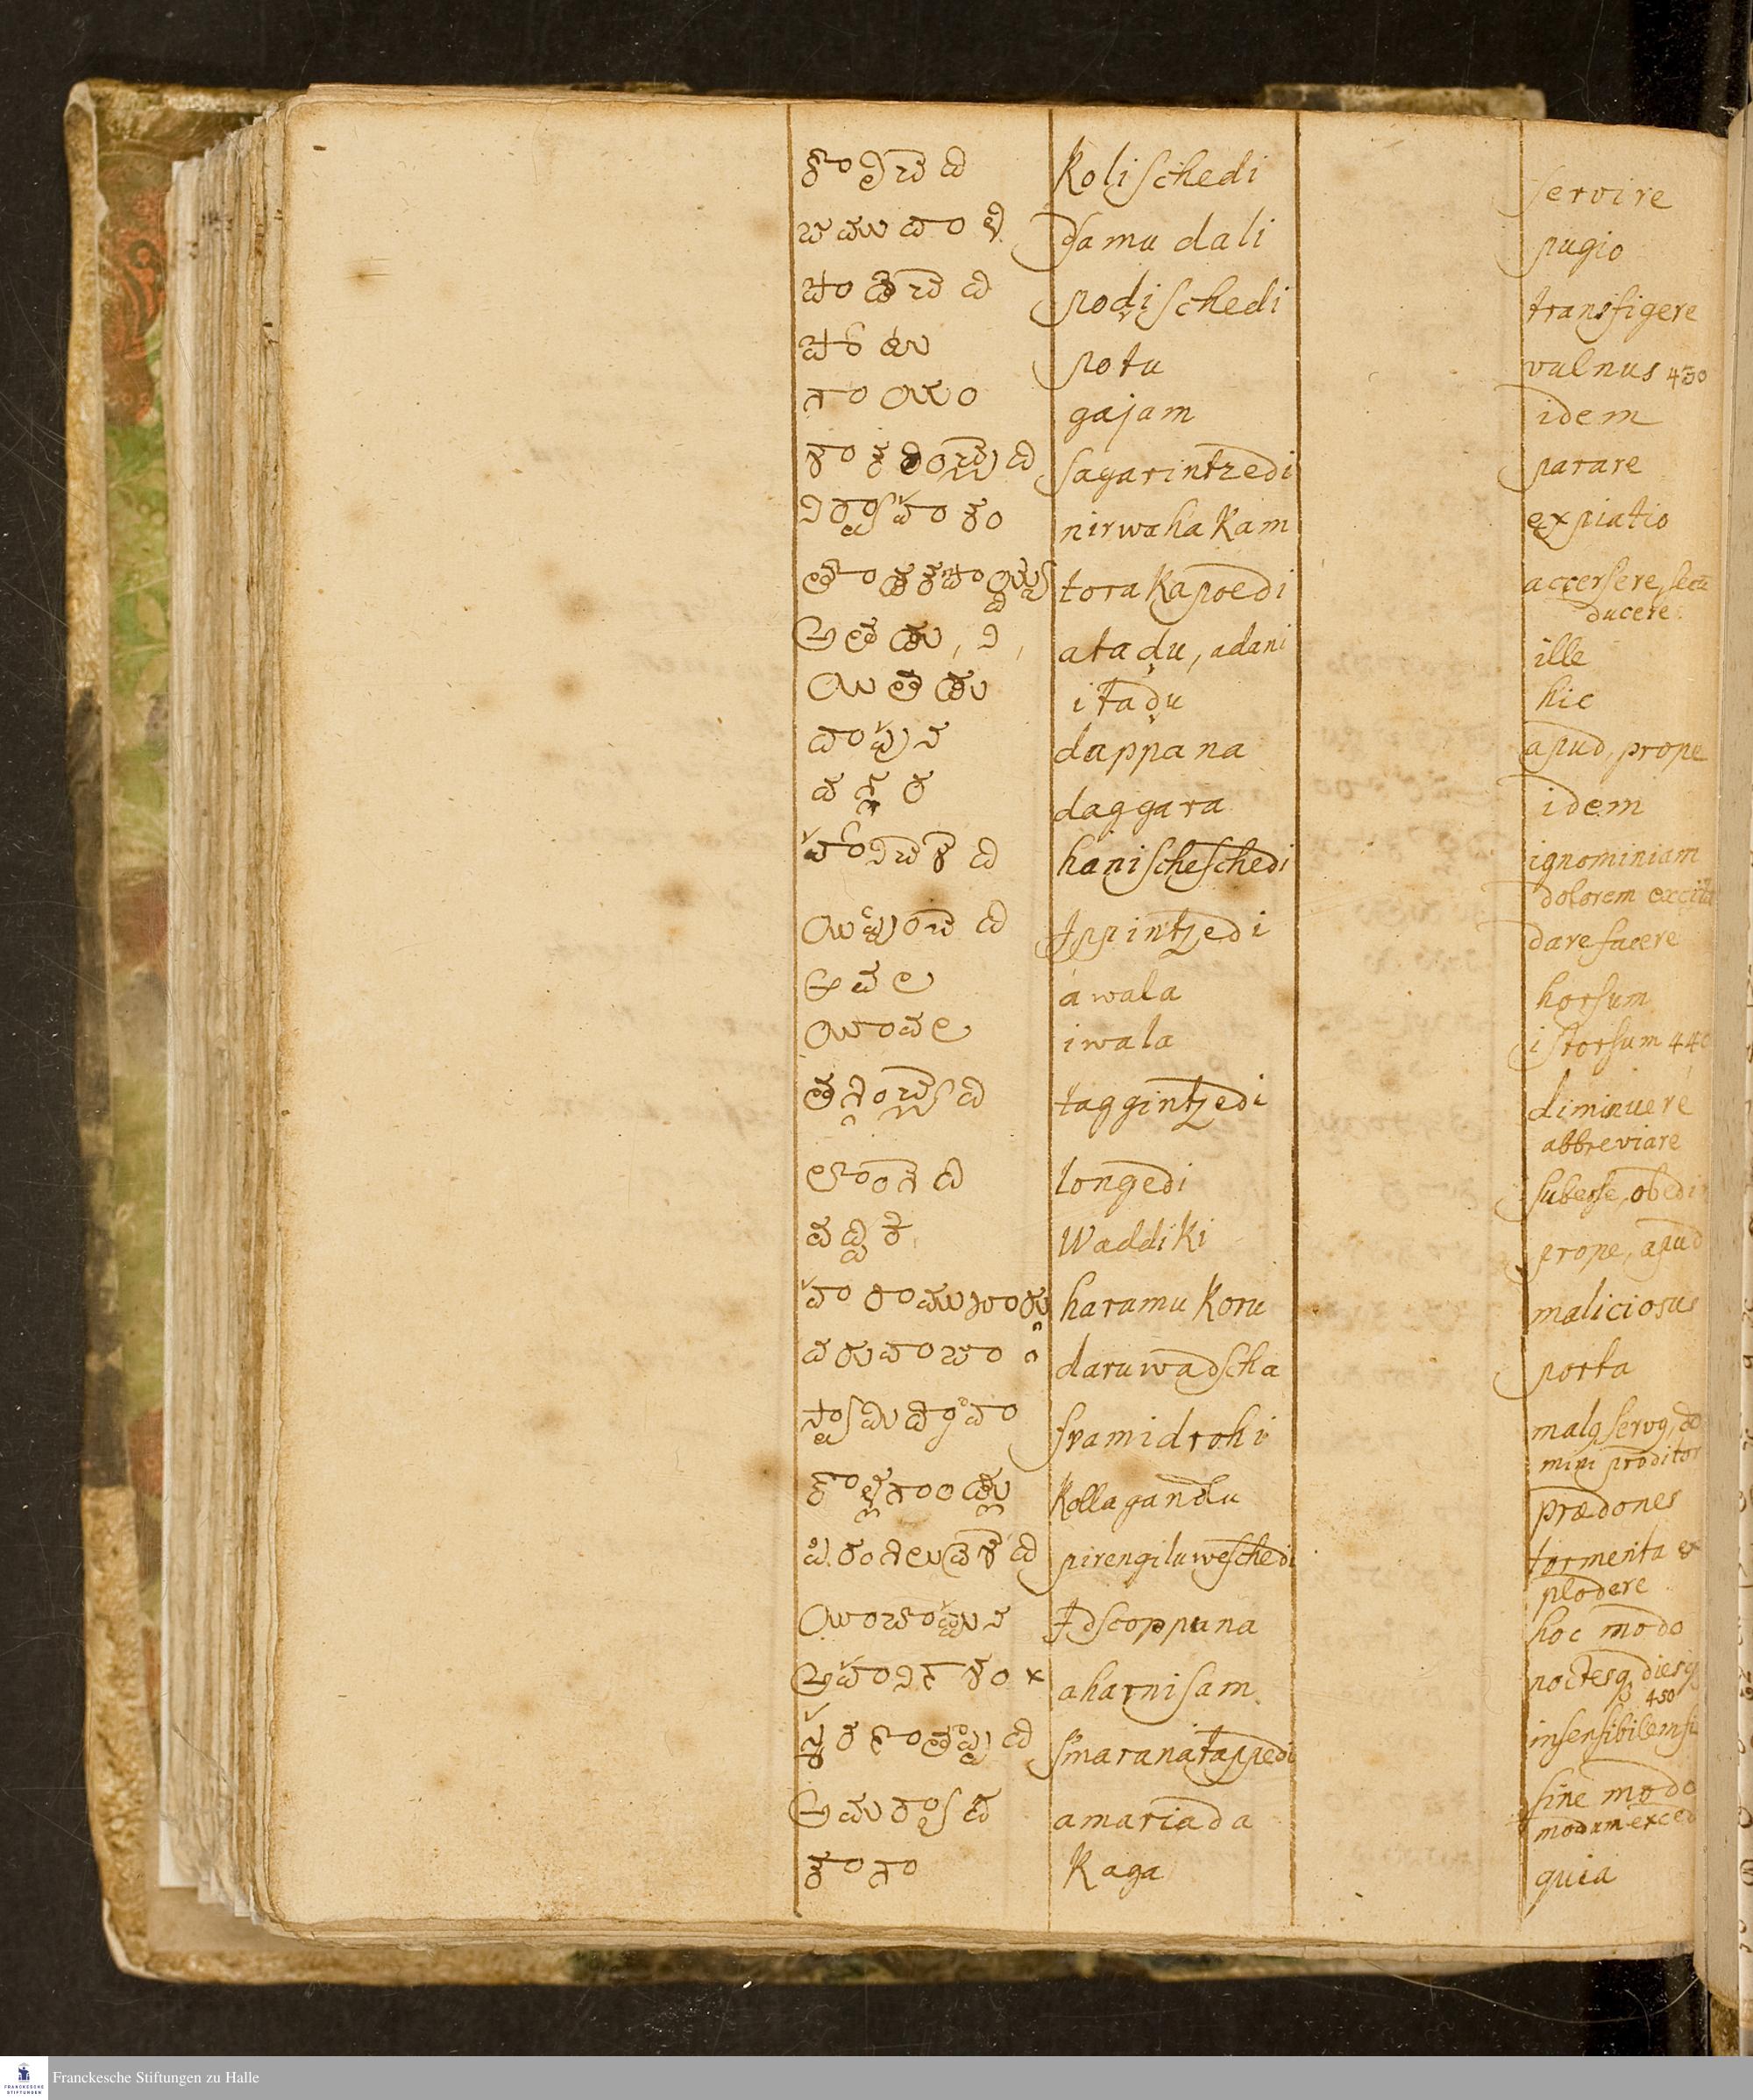 కొలిచేది Kolischedi servire
జముదాలి Jamu dali pugio
పొడిచేది podischedi transfigere
పోటు potu vulnus 430
గాయం gajam idem
sagarintzedi parare
nirwaha Kam expiatio
tora Kapoedi accersere, secū
ducere.
అతడు, ని, atadu, adani ille
ఇతడు itadu hic
దాప్పున dappana apud, prope
దగ్గర daggara idem
hanischeschedi ignominiam
dolorem excita
ఇప్పించేది Ippintzedi dare facere
అవల áwala horsum
ఇవల iwala istorsum 440
తగ్గించేది taggintzedi diminuere
abbreviare
లొంగేది longedi subesse, obedi
వద్దికి Waddiki prope, apud
హరాముఖోరు haramu Koru maliciosus
దరువాజా daruwadscha porta
స్వామిద్రోహి svamidrohi malq servq, do
mini proditor
కొల్లగాండ్లు Kollagandlu prædones
pirengiluweschedi tormenta ex
plodere
Idscoppuna hoc modo
aharnisam noctesq, diesq
450
smaranatappedi insensibilem fi
అమర్యాద amariada sine modo
modum exced
కాగా Kaga quia
Franckesche Stiftungen zu Halle